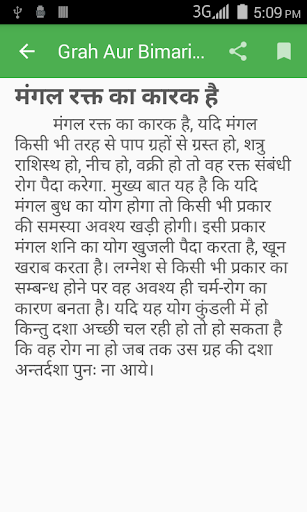 3G 5:09 PM
Grah Aur Bimari...
मंगल रक्त का कारक है
मंगल रक्त का कारक है, यदि मंगल
किसी भी तरह से पाप ग्रहों से ग्रस्त हो, शत्रु
राशिस्थ हो, नीच हो, वक्री हो तो वह रक्त संबंधी
रोग पैदा करेगा. मुख्य बात यह है कि यदि
मंगल बुध का योग होगा तो किसी भी प्रकार
की समस्या अवश्य खड़ी होगी। इसी प्रकार
मंगल शनि का योग खुजली पैदा करता है, खून
खराब करता है। लग्नेश से किसी भी प्रकार का
सम्बन्ध होने पर वह अवश्य ही चर्म-रोग का
कारण बनता है। यदि यह योग कुंडली में हो
किन्तु दशा अच्छी चल रही हो तो हो सकता है
कि वह रोग ना हो जब तक उस ग्रह की दशा
अन्तर्दशा पुनः ना आये।